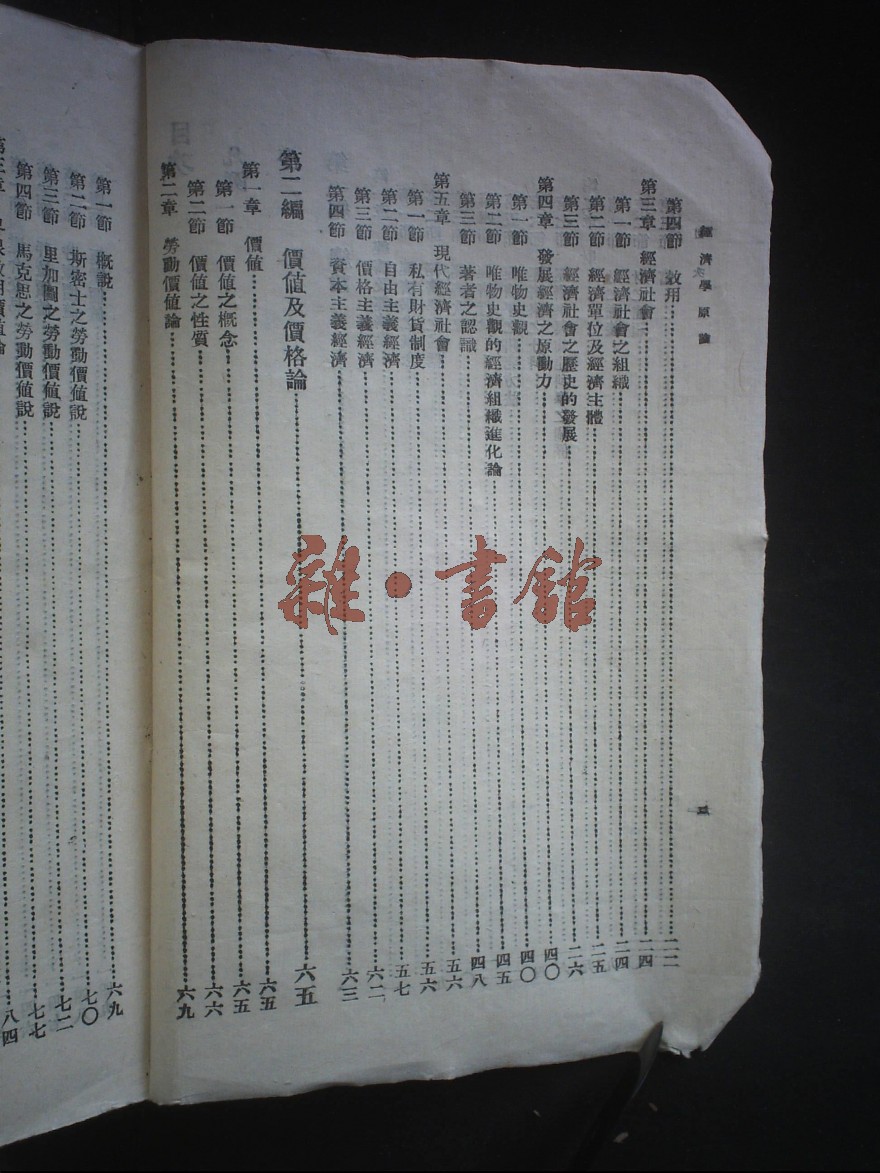 經濟學原論 三
第四節 效用 二二
第三章 經濟社會 二四
第一節 經濟社會之組織 二四
第二節 經濟單位及經濟主體 二五
第三節 經濟社會之歷史的發展 二六
第四章 發展經濟之原動力 四〇
第一節 唯物史觀 四〇
第二節 唯物史觀的經濟組織進化論 四五
第三節 著者之認識 四八
第五章 現代經濟社會 五六
第一節 私有財貨制度 五六
第二節 自由主義經濟 五七
第三節 價格主義經濟 六二
第四節 資本主義經濟 六三
第二編 價值及價格論 六五
第一章 價值 六五
第一節 價值之概念 六五
第二節 價值之性質 六六
第二章 勞動價值論 六九
第一節 概說 六九
第二節 斯密士之勞動價值說 七〇
第三節 里加圖之勞動價值說 七二
第四節 馬克思之勞動價值說 七七
八四
雜•書館